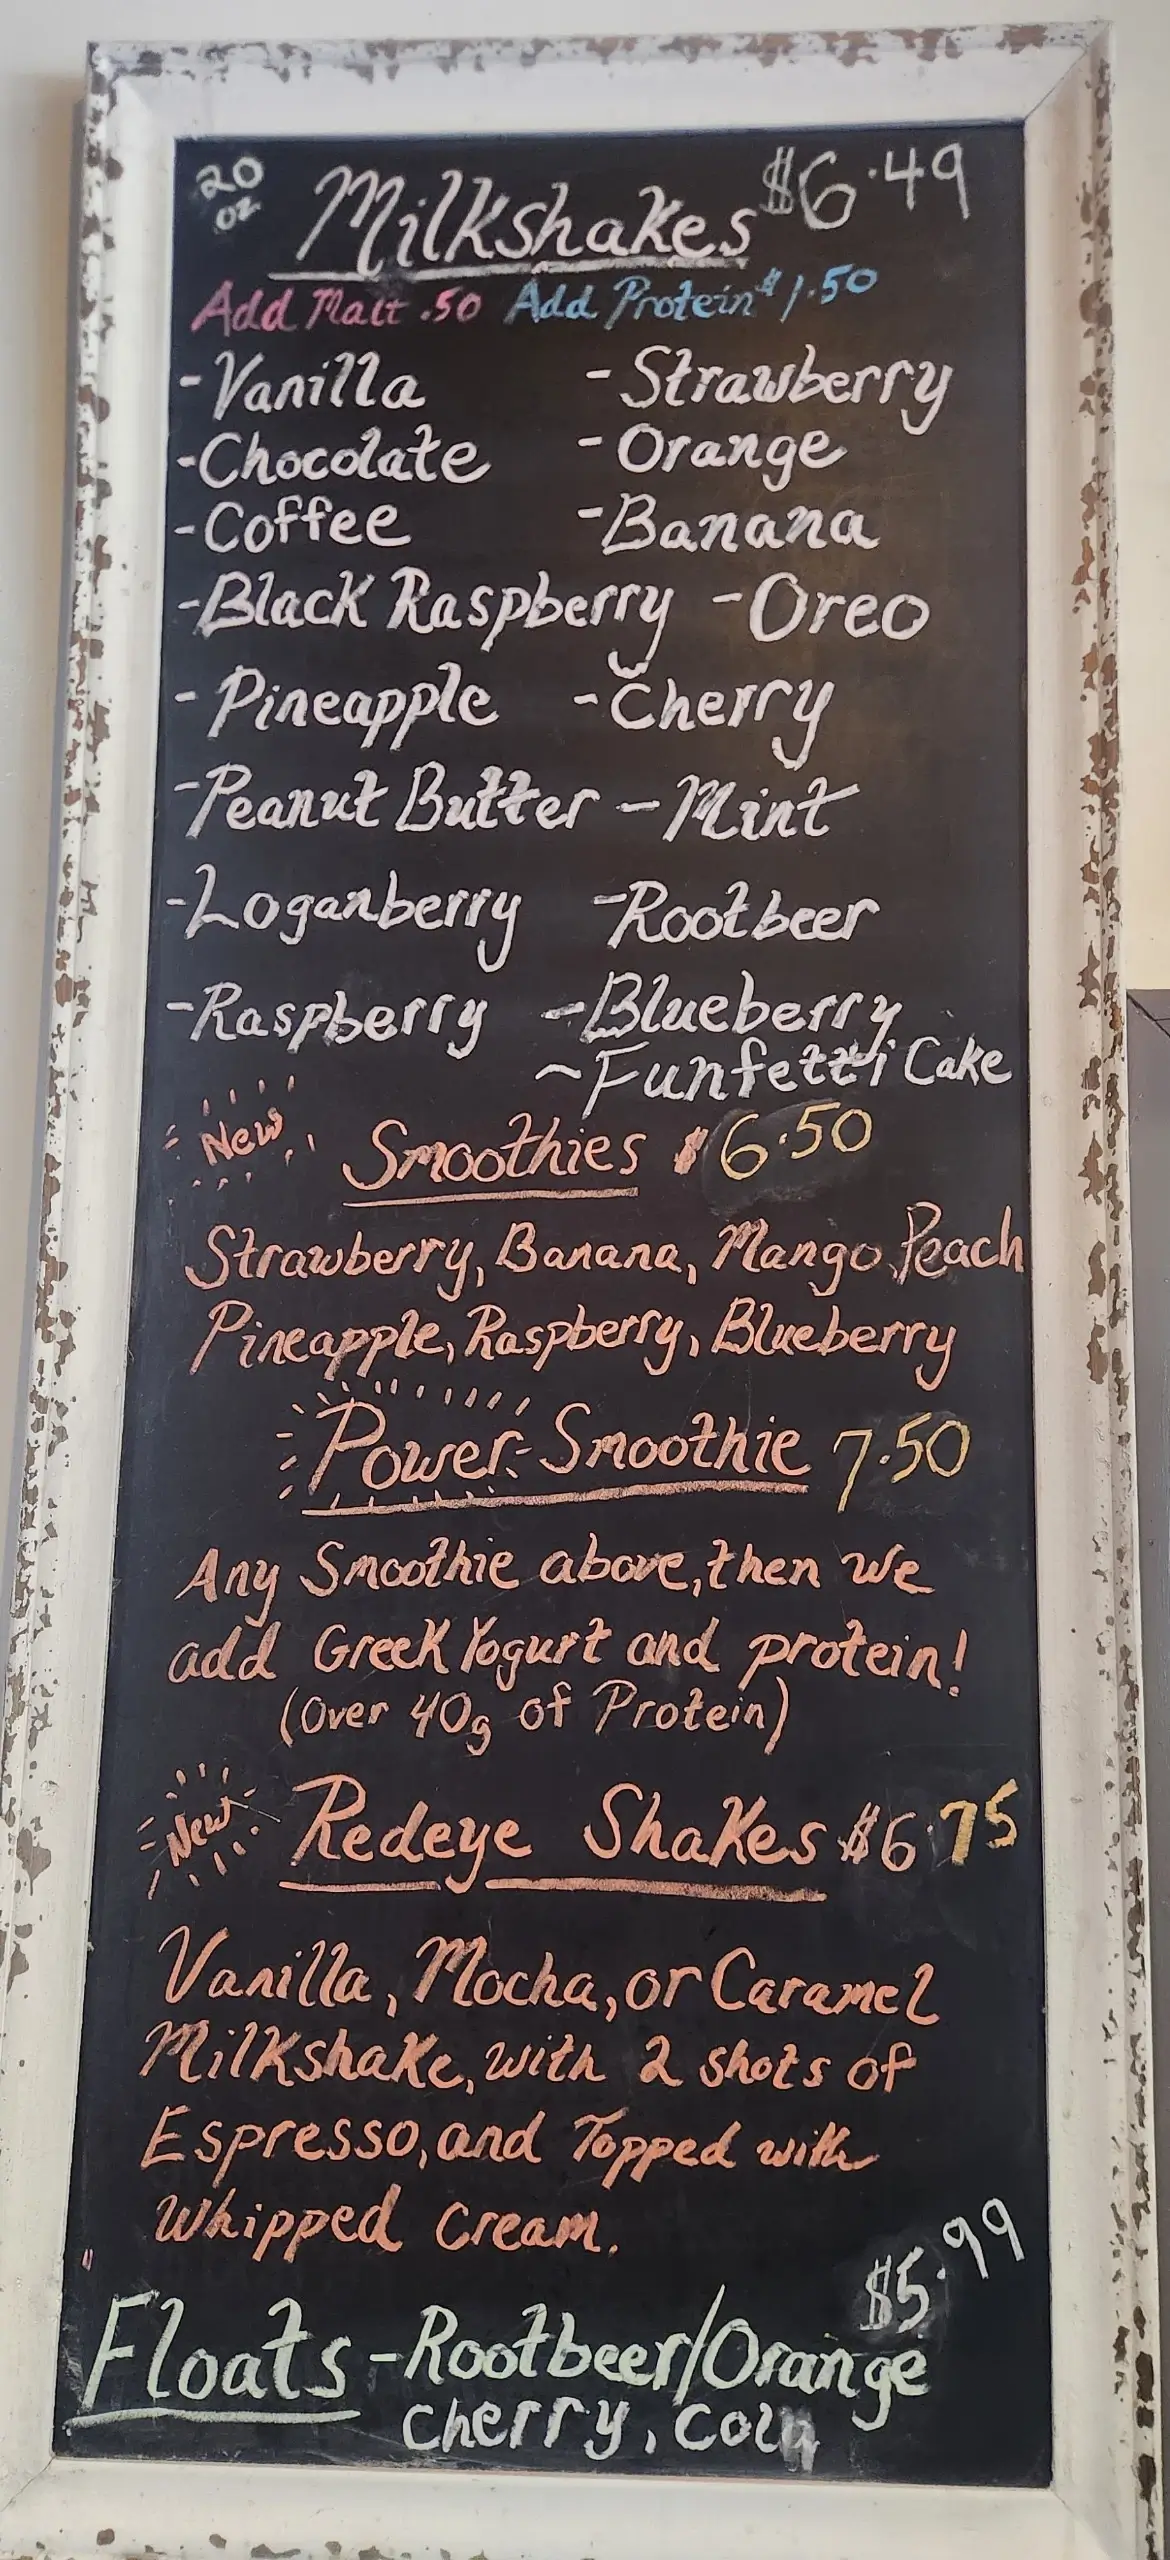 20 oz Milkshakes $6.49
Add Malt .50 Add Protein $1.50
-Vanilla -Strawberry
-Chocolate -Orange
-Coffee -Banana
-Black Raspberry -Oreo
-Pineapple -Cherry
-Peanut Butter -Mint
-Loganberry -Rootbeer
-Raspberry -Blueberry
~Funfetti Cake
New Smoothies $6.50
Strawberry, Banana, Mango, Peach
Pineapple, Raspberry, Blueberry
Power Smoothie 7.50
Any Smoothie above, then we
add Greek Yogurt and protein!
(Over 40g of Protein)
New Redeye Shakes $6.75
Vanilla, Mocha, or Caramel
Milkshake, with 2 shots of
Espresso, and Topped with
Whipped Cream.
$5.99
Floats -Rootbeer/Orange
Cherry, Cola